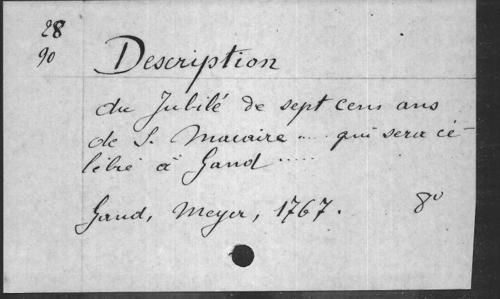 28
90
Description
du Jubilé de sept cens ans
de S. Macaire .... qui sera cé-
lébré à Gand .....
Gand, Meyer, 1767. 8°